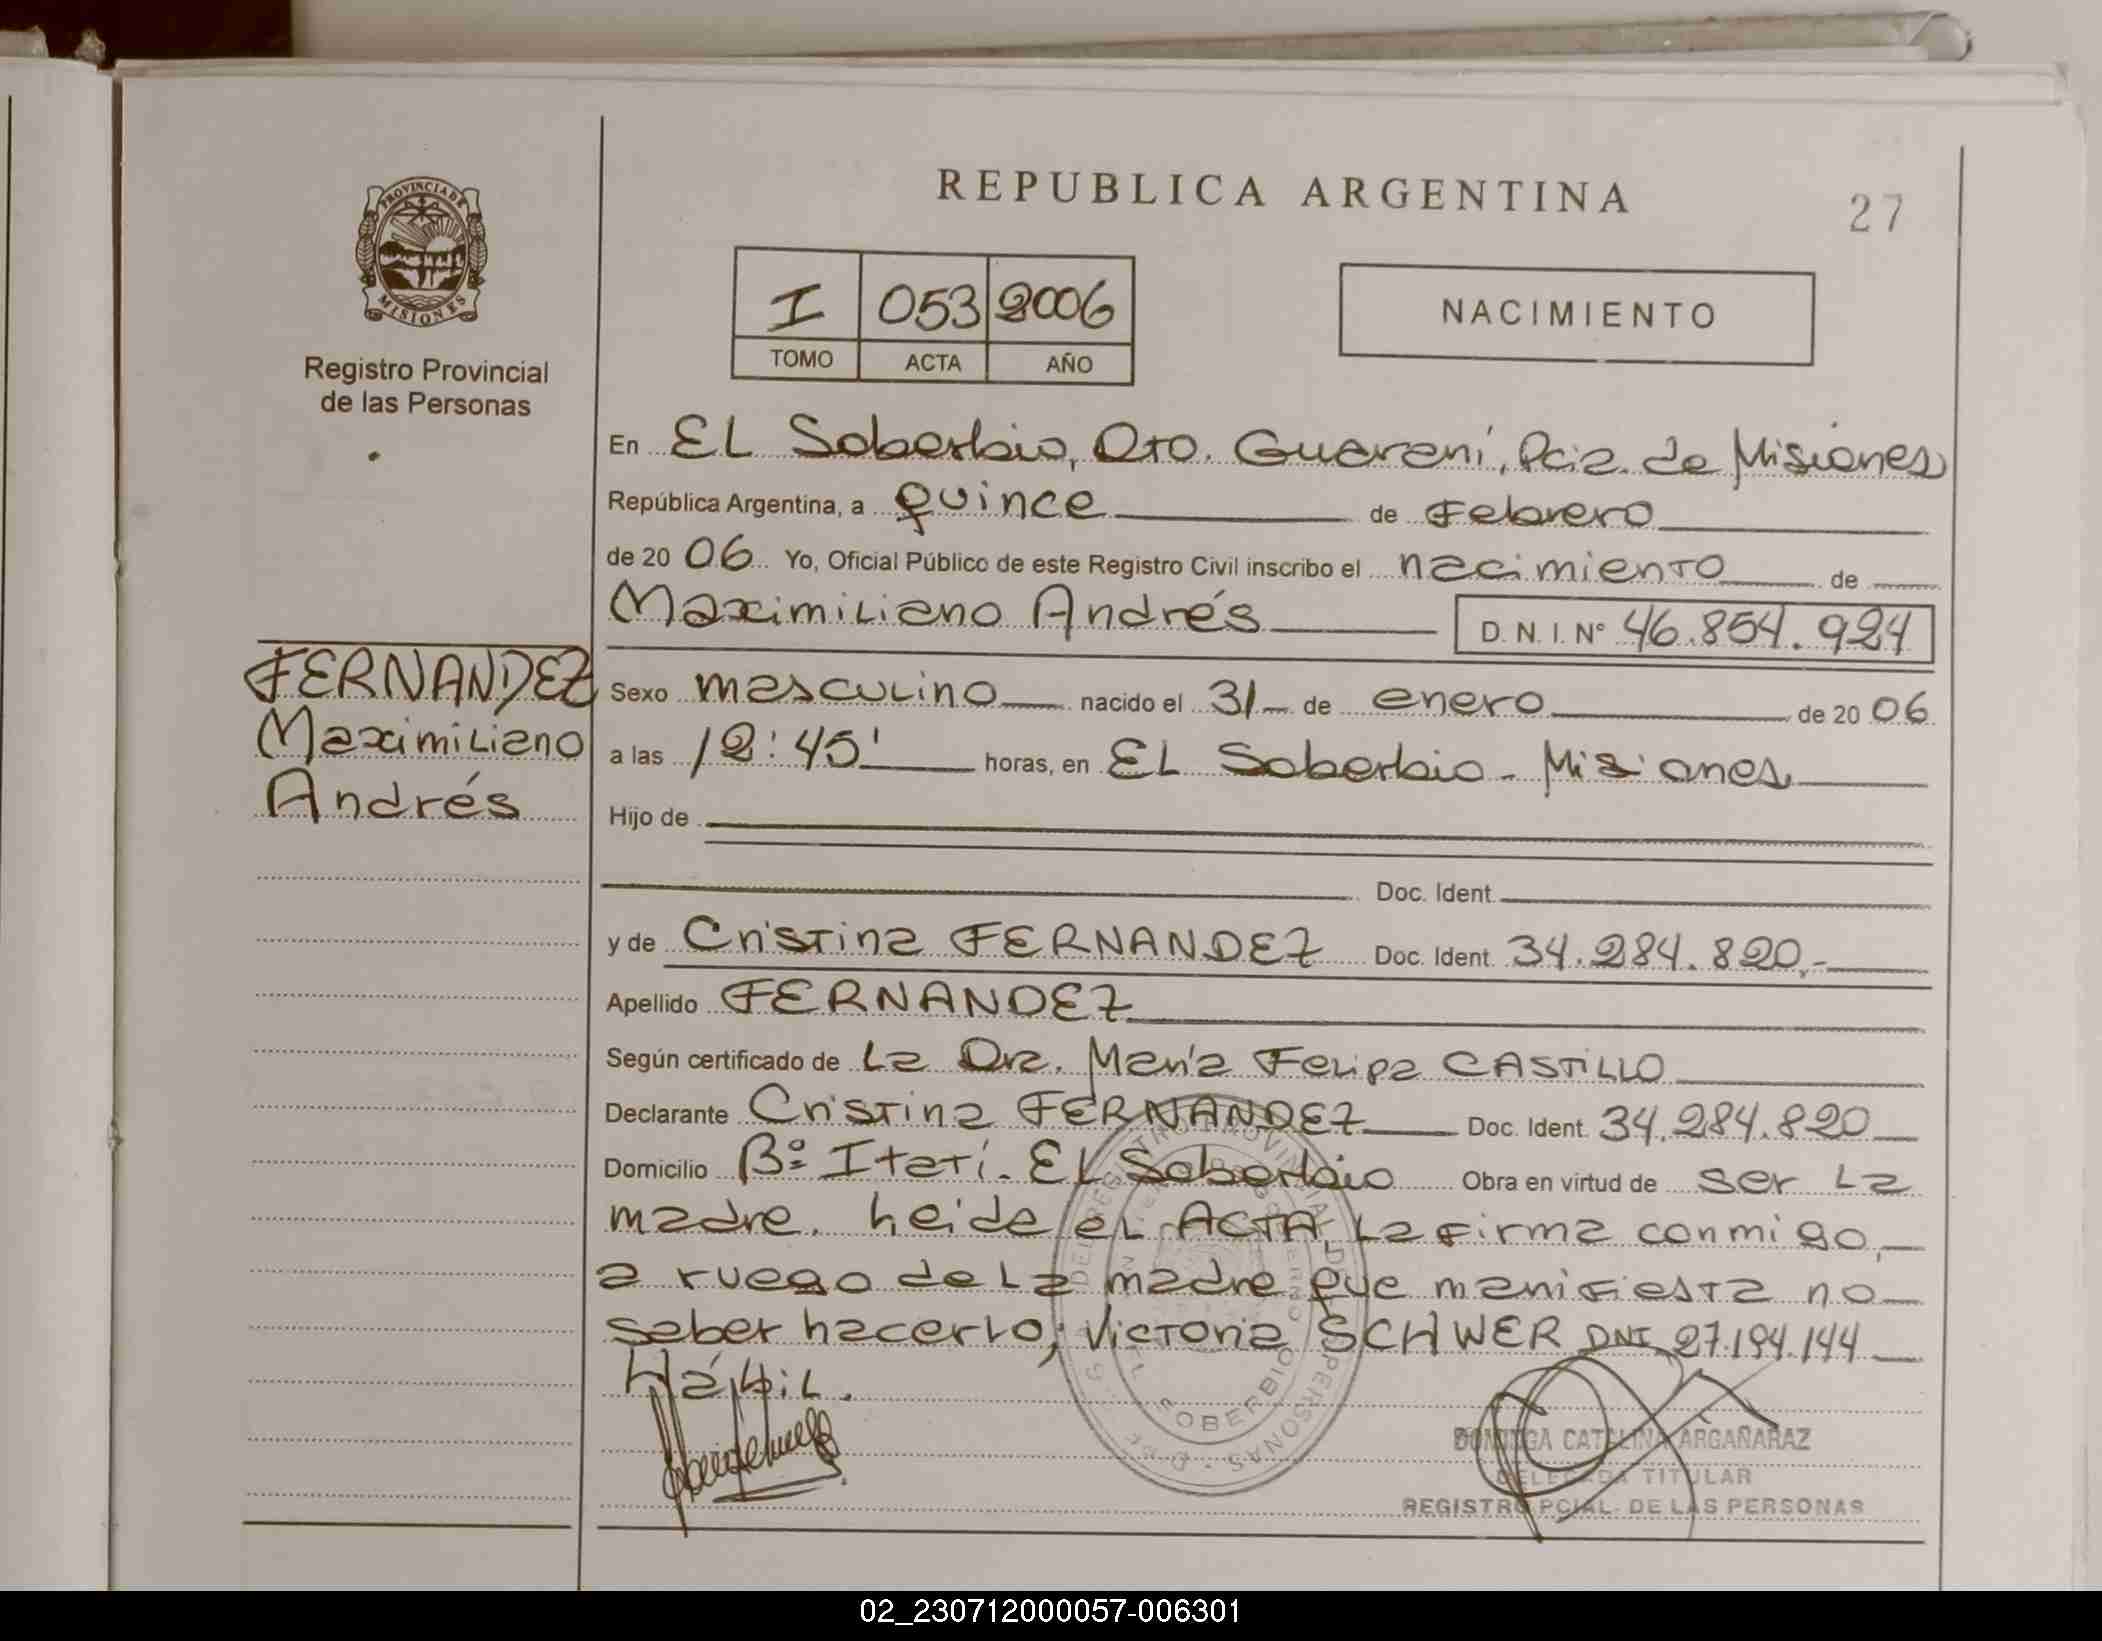 REPUBLICA ARGENTINA
27
PROVINCIA DE
MISIONES
Registro Provincial
de las Personas
I 053 2006
TOMO ACTA AÑO
NACIMIENTO
En EL Soberbio, Dto. Guaraní, Pcia. de Misiones
República Argentina, a quince de Febrero
de 2006 Yo, Oficial Público de este Registro Civil inscribo el nacimiento de
Maximiliano Andrés D. N. I. N° 46.854.924
FERNANDEZ
Maximiliano
Andrés
Sexo masculino nacido el 31 de enero de 2006
a las 12:45' horas, en EL Soberbio - Misiones
Hijo de
Doc. Ident.
y de Cristina FERNANDEZ Doc. Ident. 34.284.820.-
Apellido FERNANDEZ
Según certificado de La Dra. María Felipa CASTILLO
Declarante Cristina FERNANDEZ Doc. Ident. 34.284.820
Domicilio Bº Itatí. EL Soberbio Obra en virtud de ser La
madre. heida el ACTA, La firma conmigo,
a ruego de La madre que manifiesta no
saber hacerlo, Victoria SCHWER DNI 27.194.144
Hábil.
SOBERBIO
CATALINA ARGAÑARAZ
DELEGADA TITULAR
REGISTRO PCIAL. DE LAS PERSONAS
02_230712000057-006301